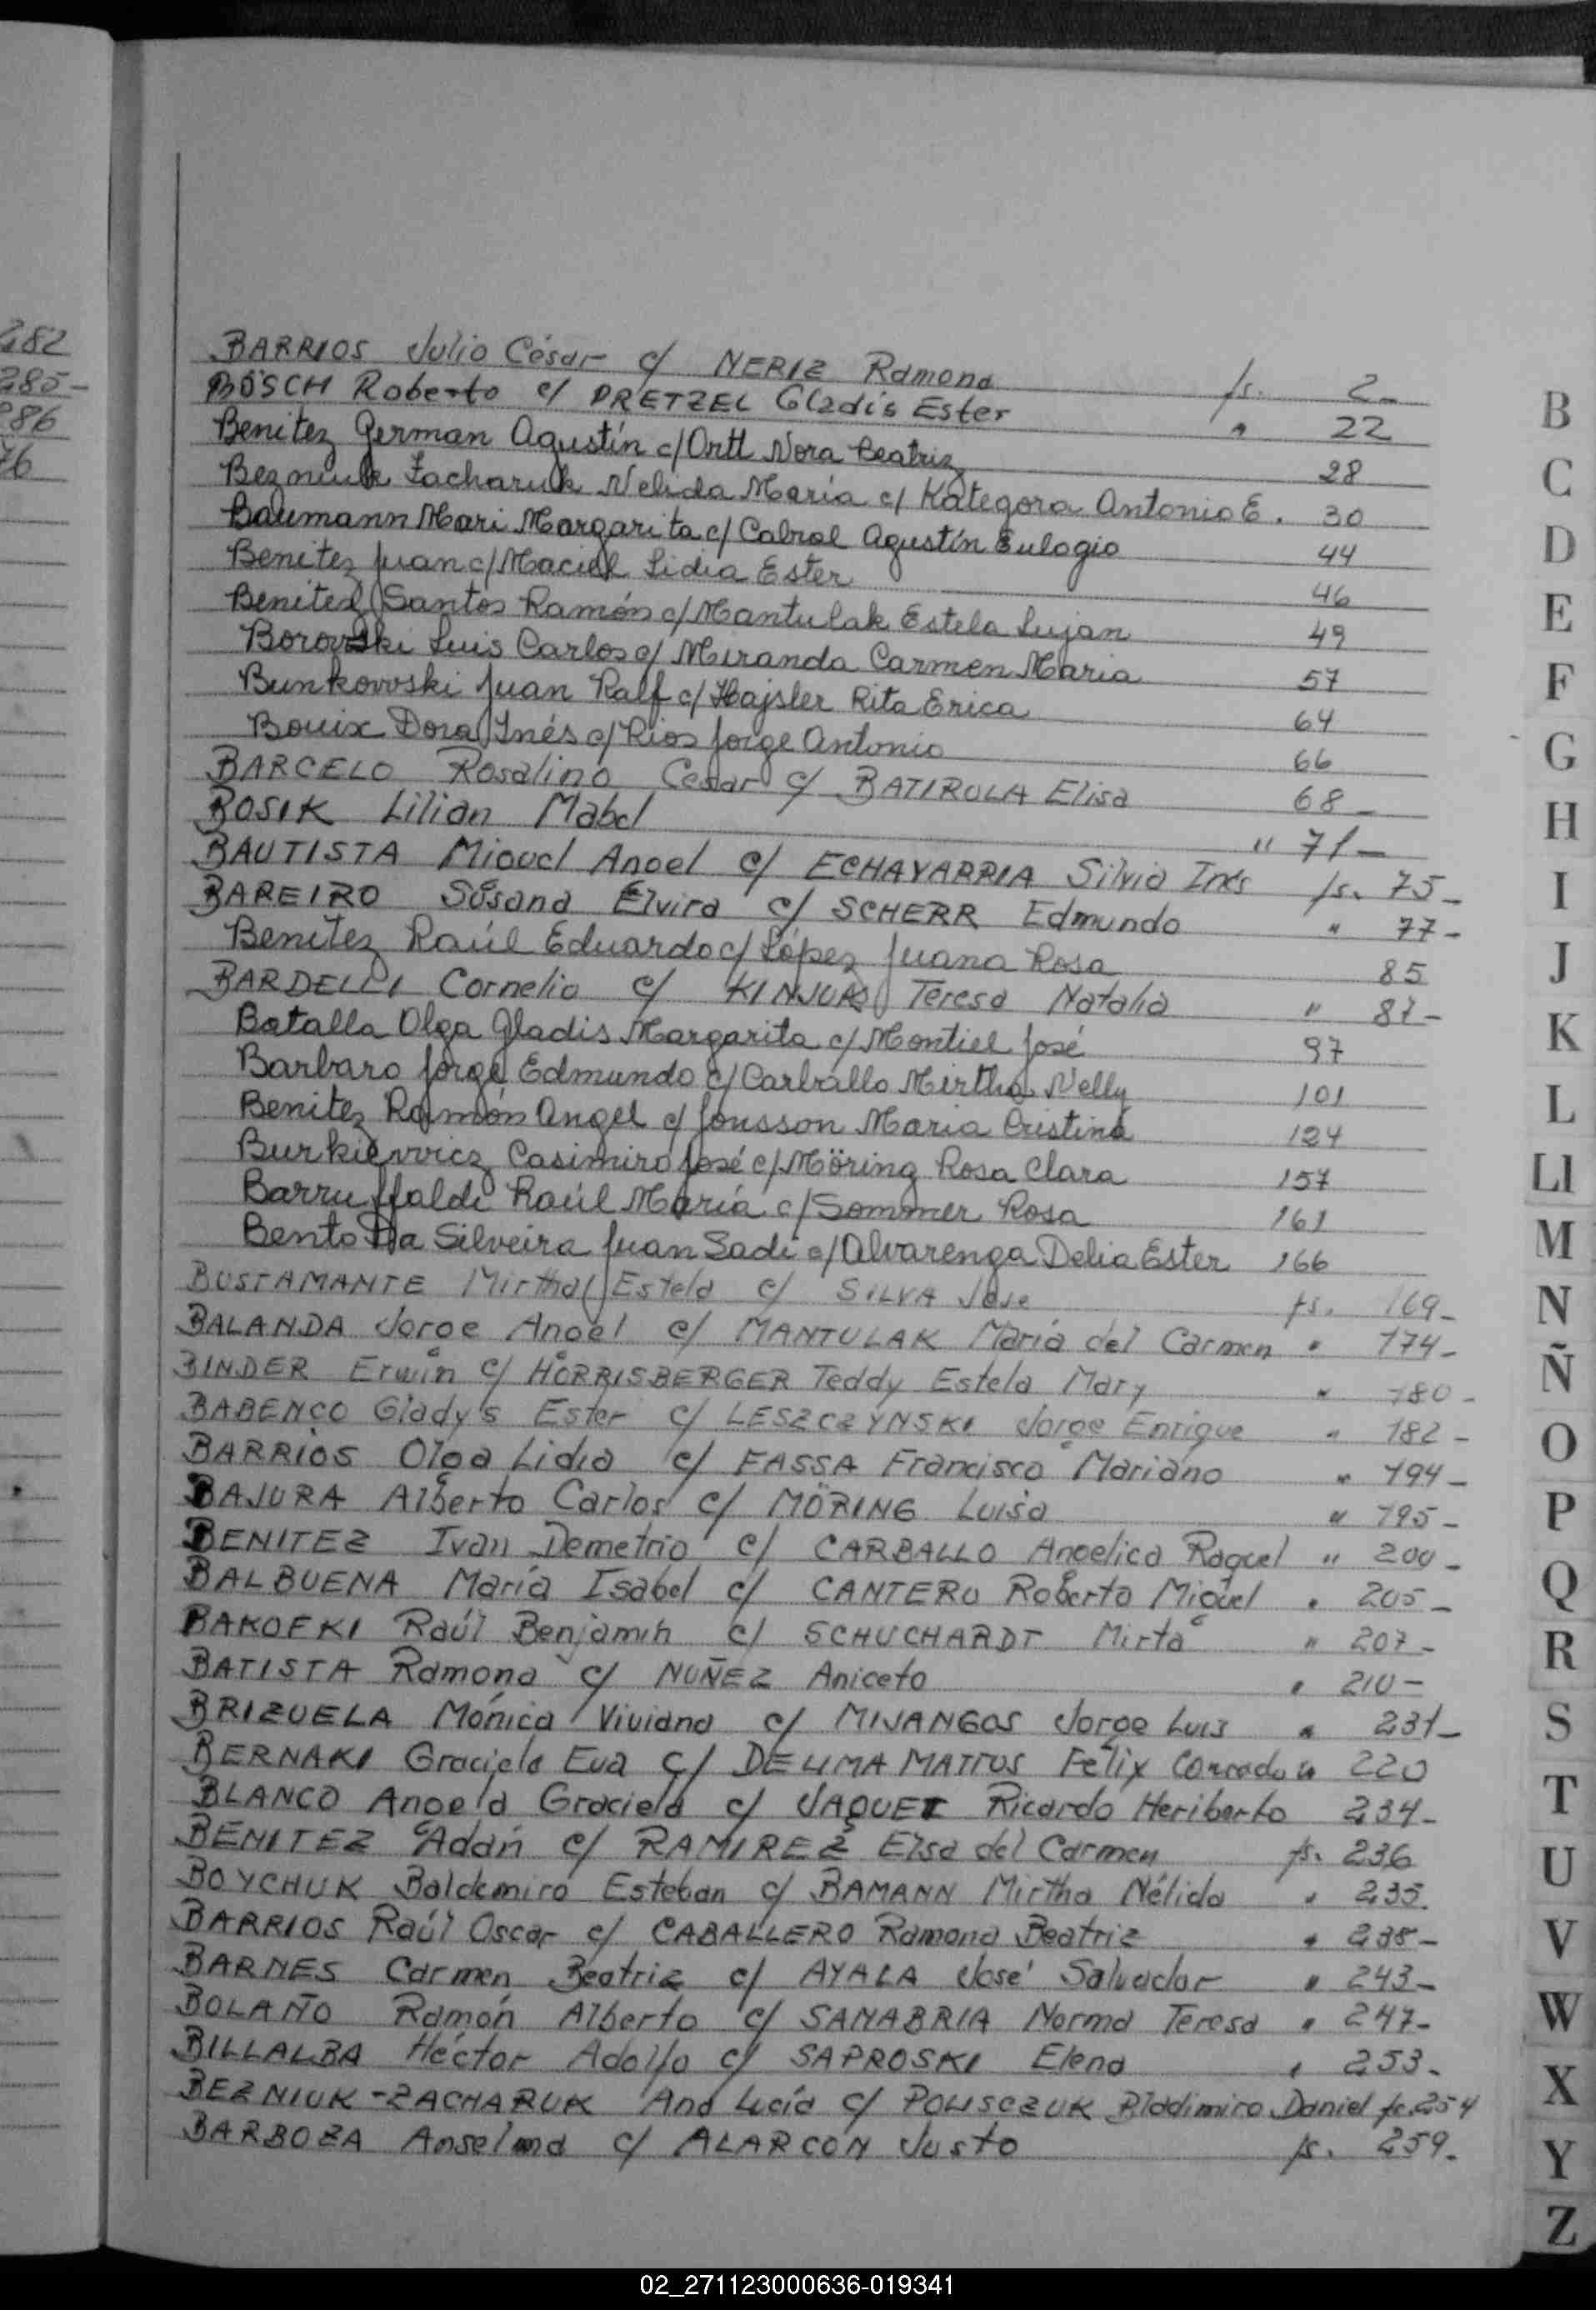 282
285-
286
76
BARRIOS Julio César c/ NERIZ Ramona fs. 2-
BOSCH Roberto c/ PRETZEL Gladis Ester " 22
Benitez German Agustín c/ Ortt Nora Beatriz 28
Bezniuk Zacharuk Nelida María c/ Kategora Antonio E. 30
Baumann Mari Margarita c/ Cabral Agustín Eulogio 44
Benitez Juan c/ Maciel Lidia Ester 46
Benitez Santos Ramón c/ Mantulak Estela Lujan 49
Borowski Luis Carlos c/ Miranda Carmen Maria 57
Bunkowski Juan Ralf c/ Hajsler Rita Erica 64
Bouix Dora Inés c/ Rios Jorge Antonio 66
BARCELO Rosalino Cesar c/ BATIROLA Elisa 68-
BOSIK Lilian Mabel " 71-
BAUTISTA Miguel Angel c/ ECHAVARRIA Silvia Inés fs. 75-
BAREIRO Susana Elvira c/ SCHERR Edmundo " 77-
Benitez Raúl Eduardo c/ López Juana Rosa 85
BARDELLI Cornelio c/ Teresa Natalia " 87-
Batalla Olga Gladis Margarita c/ Montiel José 97
Barbaro Jorge Edmundo c/ Carballo Mirtha Nelly 101
Benitez Ramón Angel c/ Jonsson Maria Cristina 124
Burkiewicz Casimiro José c/ Möring Rosa Clara 157
Barruffaldi Raúl María c/ Sommer Rosa 161
Bento Da Silveira Juan Sadi c/ Alvarenga Delia Ester 166
BUSTAMANTE Mirtha Estela c/ SILVA Jose fs. 169-
BALANDA Jorge Angel c/ MANTULAK María del Carmen " 174-
BINDER Erwin c/ HORRISBERGER Teddy Estela Mary " 180-
BABENCO Gladys Ester c/ LESZCZYNSKI Jorge Enrique " 182-
BARRIOS Olga Lidia c/ FASSA Francisco Mariano " 194-
BAJURA Alberto Carlos c/ MÖRING Luisa " 195-
BENITEZ Ivan Demetrio c/ CARBALLO Angelica Raquel " 200-
BALBUENA María Isabel c/ CANTERO Roberto Miguel " 205-
Raúl Benjamin c/ SCHUCHARDT Mirta " 207-
BATISTA Ramona c/ NUÑEZ Aniceto " 210-
BRIZUELA Mónica Viviana c/ MIJANGOS Jorge Luis " 231-
BERNAKI Graciela Eva c/ DELIMA MATTOS Felix Conrado " 220
BLANCO Angela Graciela c/ JAQUET Ricardo Heriberto 234-
BENITEZ Adán c/ RAMIREZ Elsa del Carmen fs. 236
BOYCHUK Baldemiro Esteban c/ BAMANN Mirtha Nélida " 235.
BARRIOS Raúl Oscar c/ CABALLERO Ramona Beatriz " 238-
BARNES Carmen Beatriz c/ AYALA José Salvador " 243-
BOLAÑO Ramón Alberto c/ SANABRIA Norma Teresa " 247-
BILLALBA Héctor Adolfo c/ SAPROSKI Elena " 253-
BEZNIUK-ZACHARUK Ana Lucía c/ POLISCZUK Bladimiro Daniel fs. 254
BARBOZA Anselma c/ ALARCON Justo fs. 259-
B
C
D
E
F
G
H
I
J
K
L
Ll
M
N
Ñ
O
P
Q
R
S
T
U
V
W
X
Y
Z
02_271123000636-019341